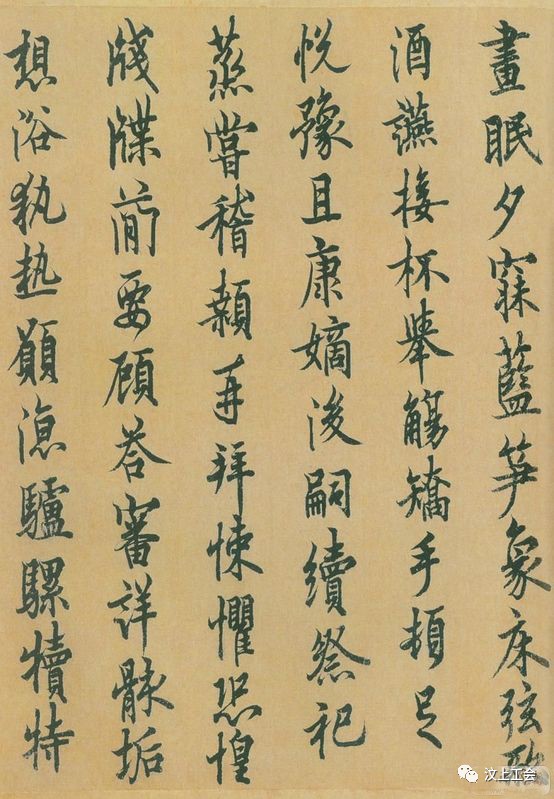 晝眠夕寐藍笋象床弦歌
酒讌接杯舉觴矯手頓足
悅豫且康嫡後嗣續祭祀
蒸嘗稽顙再拜悚懼恐惶
牋牒簡要顧答審詳骸垢
想浴執熱願涼驢騾犢特
汶上工会